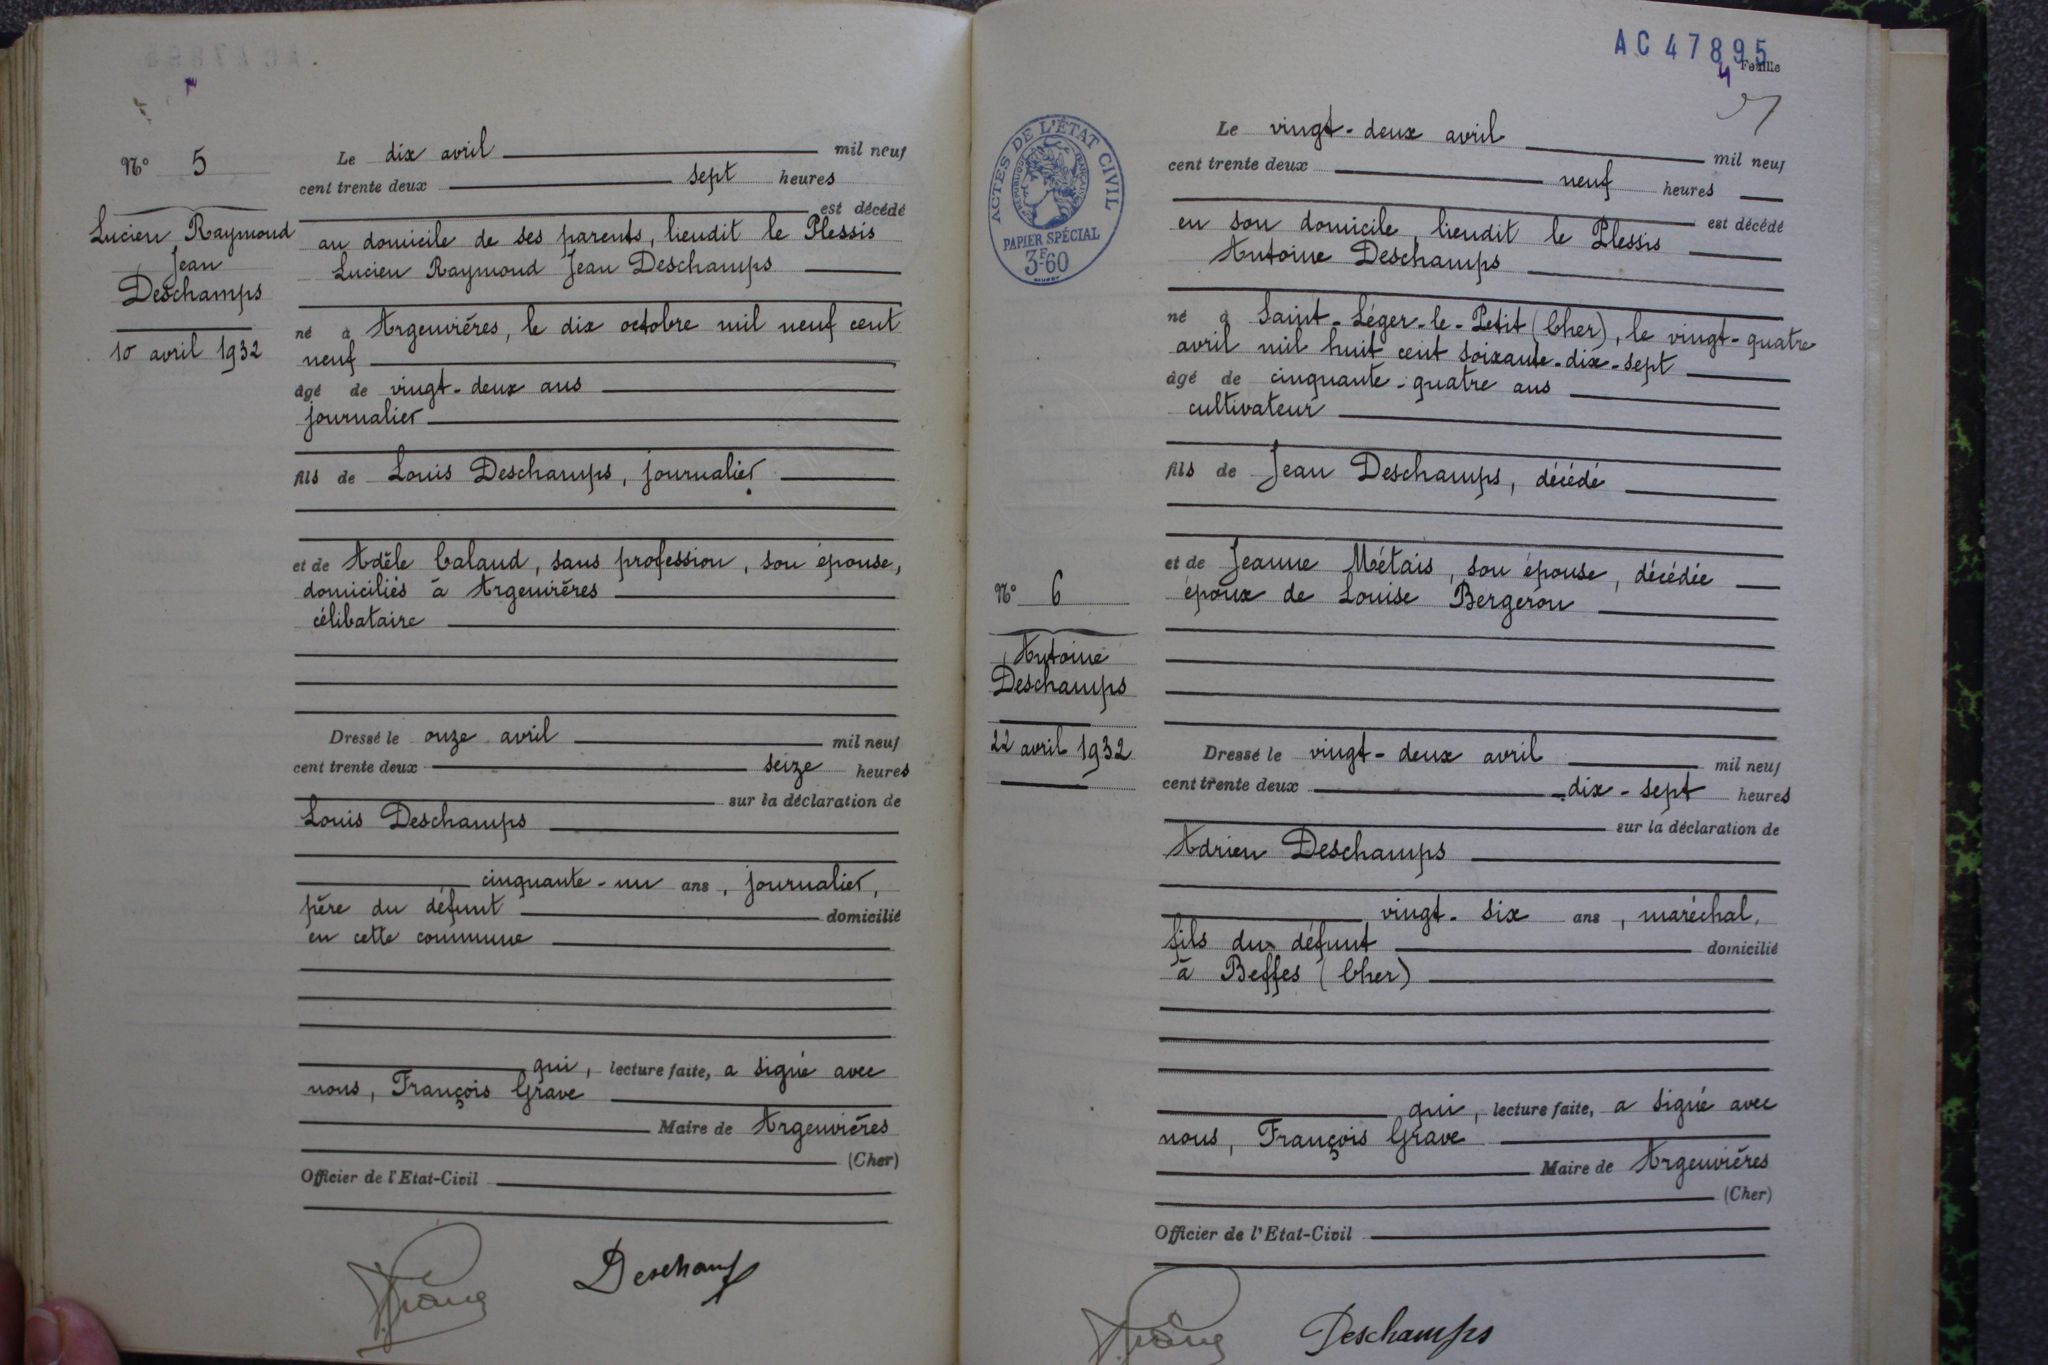 N° 5
Lucien Raymond
Jean
Deschamps
10 avril 1932
Le dix avril mil neuf
cent trente deux sept heures
est décédé
au domicile de ses parents, lieudit le Plessis
Lucien Raymond Jean Deschamps
né à Argenvières, le dix octobre mil neuf cent
neuf
âgé de vingt-deux ans
journalier
fils de Louis Deschamps, journalier
et de Adèle Calaud, sans profession, son épouse,
domiciliés à Argenvières
célibataire
Dressé le onze avril mil neuf
cent trente deux seize heures
sur la déclaration de
Louis Deschamps
cinquante-un ans, journalier,
père du défunt domicilié
en cette commune
qui, lecture faite, a signé avec
nous, François Grave
Maire de Argenvières
(Cher)
Officier de l'Etat-Civil
Deschamps
AC47895
Feuille
4
ACTES DE L'ÉTAT CIVIL
RÉPUBLIQUE FRANÇAISE
PAPIER SPÉCIAL
3F-60
Le vingt-deux avril mil neuf
cent trente deux neuf heures
est décédé
en son domicile, lieudit le Plessis
Antoine Deschamps
né à Saint-Léger-le-Petit (Cher), le vingt-quatre
avril mil huit cent soixante-dix-sept
âgé de cinquante-quatre ans
cultivateur
fils de Jean Deschamps, décédé
et de Jeanne Métais, son épouse, décédée
époux de Louise Bergeron
N° 6
Antoine
Deschamps
22 avril 1932
Dressé le vingt-deux avril mil neuf
cent trente deux dix-sept heures
sur la déclaration de
Adrien Deschamps
vingt-six ans, maréchal,
fils du défunt domicilié
à Beffes (Cher)
qui, lecture faite, a signé avec
nous, François Grave
Maire de Argenvières
(Cher)
Officier de l'Etat-Civil
Deschamps